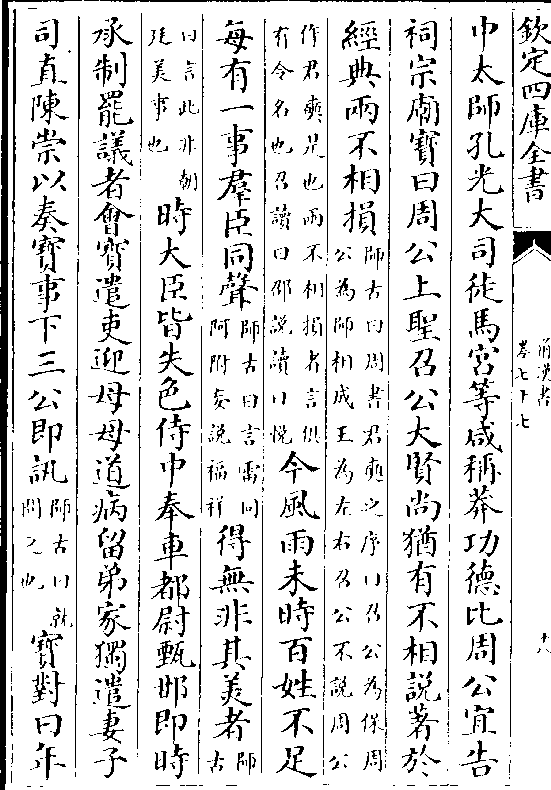 欽定四庫全書
前漢書
卷七十七
十八
中太師孔光大司徒馬宮等咸稱莽功德比周公宜告
祠宗廟寶曰周公上聖召公大賢尚猶有不相說著於
經典兩不相損師古曰周書君奭之序曰召公為保周公為師相成王為左右召公不說周公
作君奭是也兩不相損者言俱有令名也召讀曰邵說讀曰悅今風雨未時百姓不足
每有一事羣臣同聲師古曰言雷同阿附妄說福祥得無非其美者師古
曰言此非朝廷美事也時大臣皆失色侍中奉車都尉甄邯即時
承制罷議者會寶遣吏迎母母道病留弟家獨遣妻子
司直陳崇以奏寶事下三公即訊師古曰就問之也寶對曰年